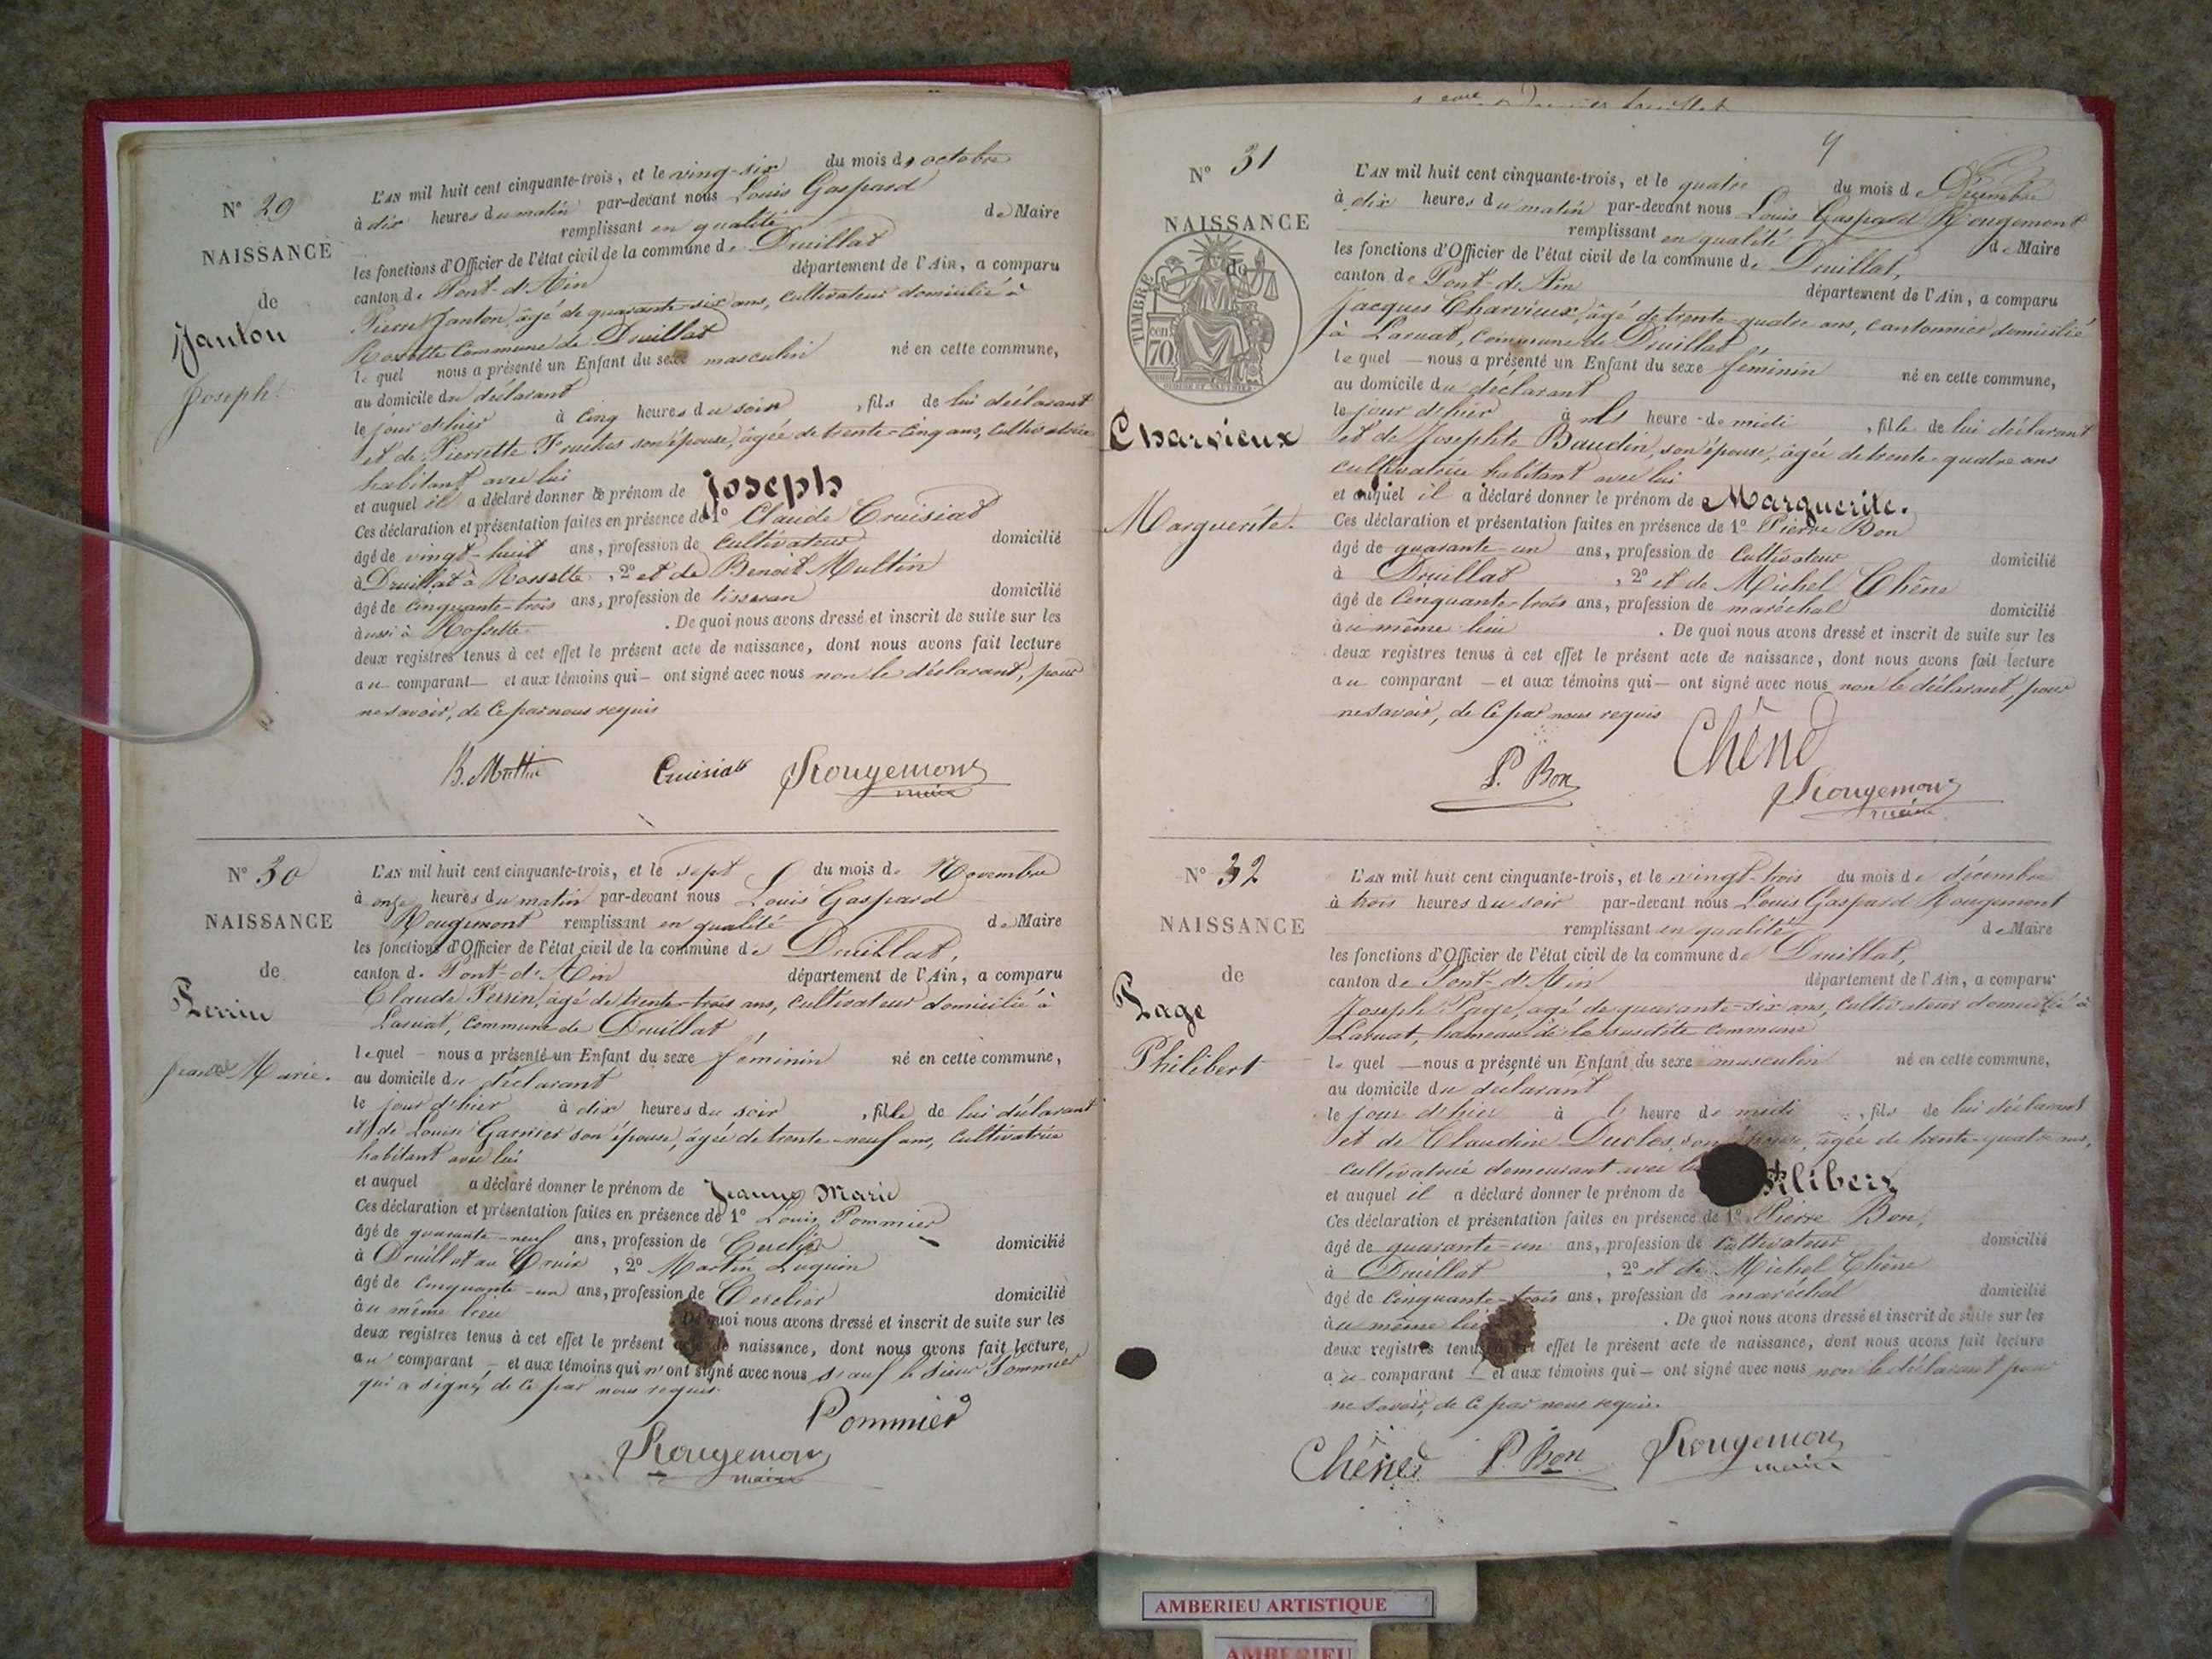 N° 29
NAISSANCE
de
Janton
Joseph
L'AN mil huit cent cinquante-trois, et le ving-six du mois d'octobre
à dix heures du matin par-devant nous Louis Gaspard
remplissant en qualité de Maire
les fonctions d'Officier de l'état civil de la commune de Druillat
canton de Pont-d'Ain département de l'Ain, a comparu
Pierre Janton, âgé de quarante-six ans, cultivateur domicilié à
Rossette commune de Druillat
lequel nous a présenté un Enfant du sexe masculin né en cette commune,
au domicile du déclarant
le jour d'hier à cinq heures du soir, fils de lui déclarant
et de Pierrette son épouse, âgée de trente-cinq ans, cultivatrice
habitant avec lui
et auquel il a déclaré donner le prénom de Joseph
Ces déclaration et présentation faites en présence de 1° Claude Cruisiat
âgé de vingt-huit ans, profession de cultivateur domicilié
à Druillat à Rossette, 2° et de Benoît Multin
âgé de cinquante-trois ans, profession de tisseran domicilié
aussi à Rossette. De quoi nous avons dressé et inscrit de suite sur les
deux registres tenus à cet effet le présent acte de naissance, dont nous avons fait lecture
au comparant et aux témoins qui ont signé avec nous non le déclarant, pour
ne savoir, de ce par nous requis
B. Cruisiat Rougemont
maire
N° 30
NAISSANCE
de
Perrin
Jeanne Marie.
L'AN mil huit cent cinquante-trois, et le sept du mois de Novembre
à onze heures du matin par-devant nous Louis Gaspard
Rougemont remplissant en qualité de Maire
les fonctions d'Officier de l'état civil de la commune de Druillat,
canton de Pont-d'Ain département de l'Ain, a comparu
Claude Perrin, âgé de trente-trois ans, cultivateur domicilié à
commune de Druillat
lequel nous a présenté un Enfant du sexe féminin né en cette commune,
au domicile du déclarant
le jour d'hier à dix heures du soir, fille de lui déclarant
et de Louise Garnier son épouse, âgée de trente-neuf ans, cultivatrice
habitant avec lui
et auquel a déclaré donner le prénom de Jeanne Marie
Ces déclaration et présentation faites en présence de 1° Louis Pommier
âgé de quarante-neuf ans, profession de domicilié
à Druillat au, 2° Martin
âgé de cinquante-un ans, profession de Cerclier domicilié
au même lieu De quoi nous avons dressé et inscrit de suite sur les
deux registres tenus à cet effet le présent acte de naissance, dont nous avons fait lecture,
au comparant et aux témoins qui n'ont signé avec nous sauf le sieur Pommier
qui a signé, de ce par nous requis.
Pommier
Rougemont
maire
9
N° 31
NAISSANCE
de
TIMBRE
70
Charvieux
Marguerite.
L'AN mil huit cent cinquante-trois, et le quatre du mois de Décembre
à dix heures du matin par-devant nous Louis Gaspard Rougemont
remplissant en qualité de Maire
les fonctions d'Officier de l'état civil de la commune de Druillat,
canton de Pont-d'Ain département de l'Ain, a comparu
Jacques Charvieux, âgé de trente-quatre ans, cantonnier domicilié
à Laruat, commune de Druillat
lequel nous a présenté un Enfant du sexe féminin né en cette commune,
au domicile du déclarant
le jour d'hier à heure de midi, fille de lui déclarant
et de Josephte Baudin, son épouse, âgée de trente-quatre ans
cultivatrice habitant avec lui
et auquel il a déclaré donner le prénom de Marguerite.
Ces déclaration et présentation faites en présence de 1° Pierre Bon
âgé de quarante-un ans, profession de cultivateur domicilié
à Druillat, 2° et de Michel Chêne
âgé de cinquante-trois ans, profession de maréchal domicilié
au même lieu. De quoi nous avons dressé et inscrit de suite sur les
deux registres tenus à cet effet le présent acte de naissance, dont nous avons fait lecture
au comparant et aux témoins qui ont signé avec nous non le déclarant, pour
ne savoir, de ce par nous requis
Chêne
P. Bon
Rougemont
maire
N° 32
NAISSANCE
de
Page
Philibert
L'AN mil huit cent cinquante-trois, et le vingt-trois du mois de décembre
à trois heures du soir par-devant nous Louis Gaspard Rougemont
remplissant en qualité de Maire
les fonctions d'Officier de l'état civil de la commune de Druillat,
canton de Pont-d'Ain département de l'Ain, a comparu
Joseph Page, âgé de quarante-six ans, cultivateur domicilié à
Laruat, hameau de la susdite commune
lequel nous a présenté un Enfant du sexe masculin né en cette commune,
au domicile du déclarant
le jour d'hier à heure de midi, fils de lui déclarant
et de Claudine Duclos, son épouse, âgée de trente-quatre ans,
cultivatrice demeurant avec
et auquel il a déclaré donner le prénom de Philibert
Ces déclaration et présentation faites en présence de 1° Pierre Bon,
âgé de quarante-un ans, profession de cultivateur domicilié
à Druillat, 2° et de Michel Chêne
âgé de cinquante-trois ans, profession de maréchal domicilié
au même lieu. De quoi nous avons dressé et inscrit de suite sur les
deux registres tenus à cet effet le présent acte de naissance, dont nous avons fait lecture
au comparant et aux témoins qui ont signé avec nous non le déclarant pour
ne savoir, de ce par nous requis.
Chêne P. Bon Rougemont
maire
AMBERIEU ARTISTIQUE
AMBERIEU